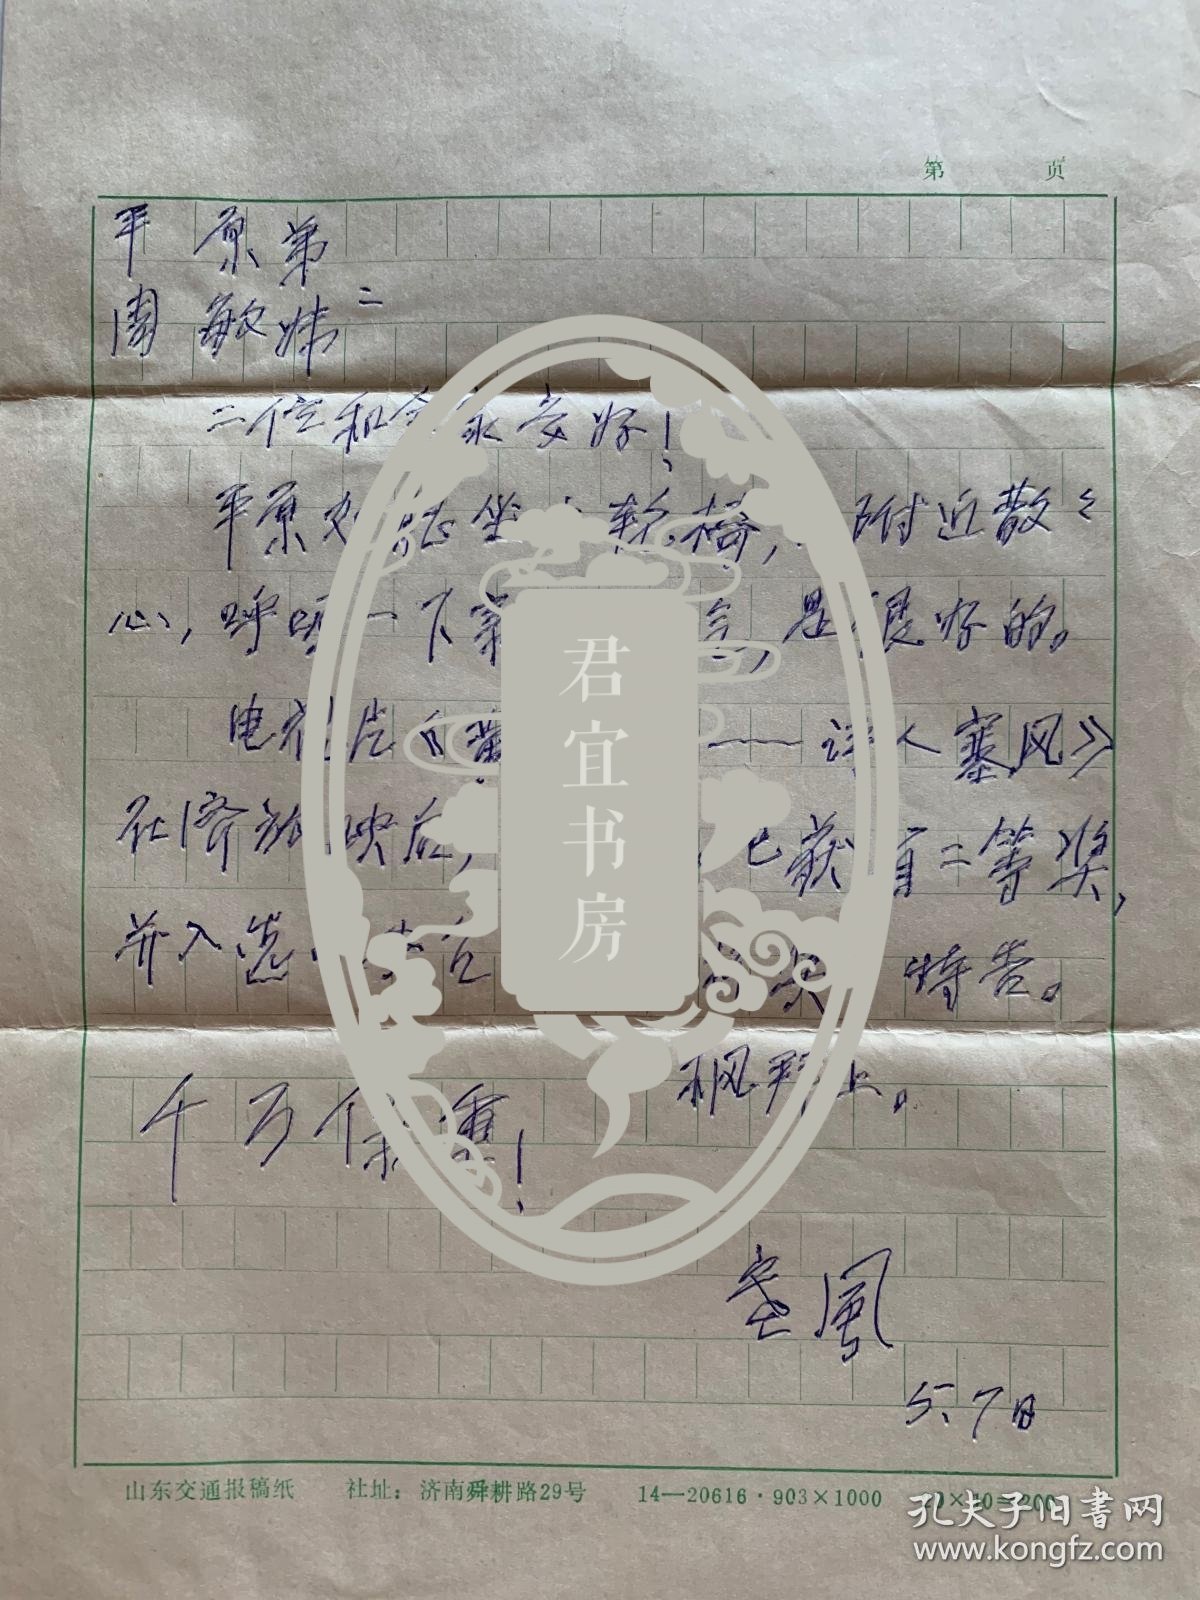 第 页
平原弟
周敏妹
二位和全家安好！
平原如能坐上轮椅，附近散々
心，呼吸一下新 是很好的。
电视片《黄 ——诗人塞风》
在济放映后， 已获省二等奖，
并入选 特告。
枫拜上。
千万保重！
塞風
5.7日
君宜书房
山东交通报稿纸 社址：济南舜耕路29号 14—20616·903×1000 20×10=200
孔夫子旧书网
www.kongfz.com